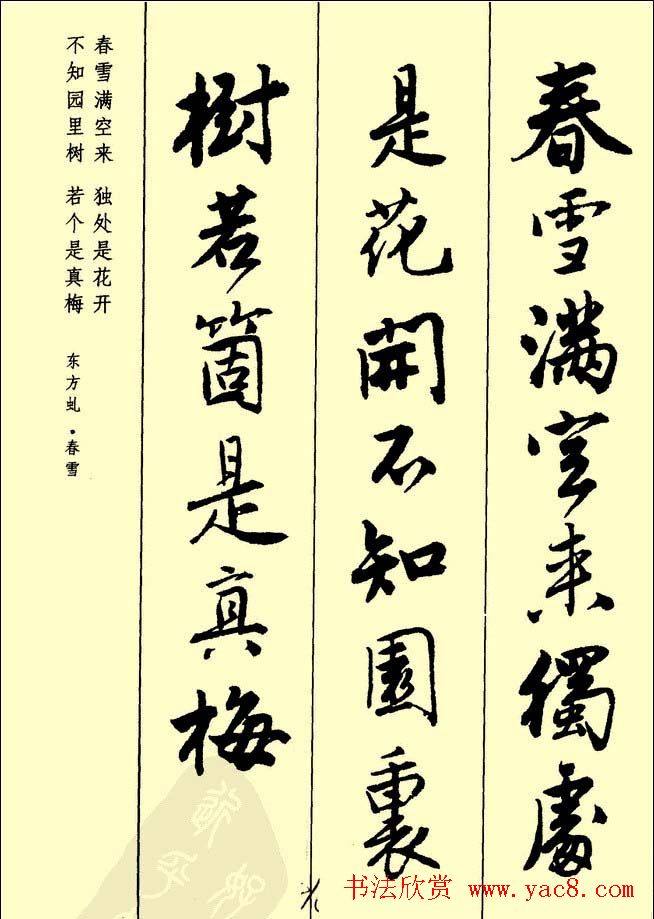 春雪滿空来獨處
是花開不知園裏
樹若箇是真梅
春雪满空来 独处是花开
不知园里树 若个是真梅
东方虬·春雪
书法欣赏 www.yac8.com